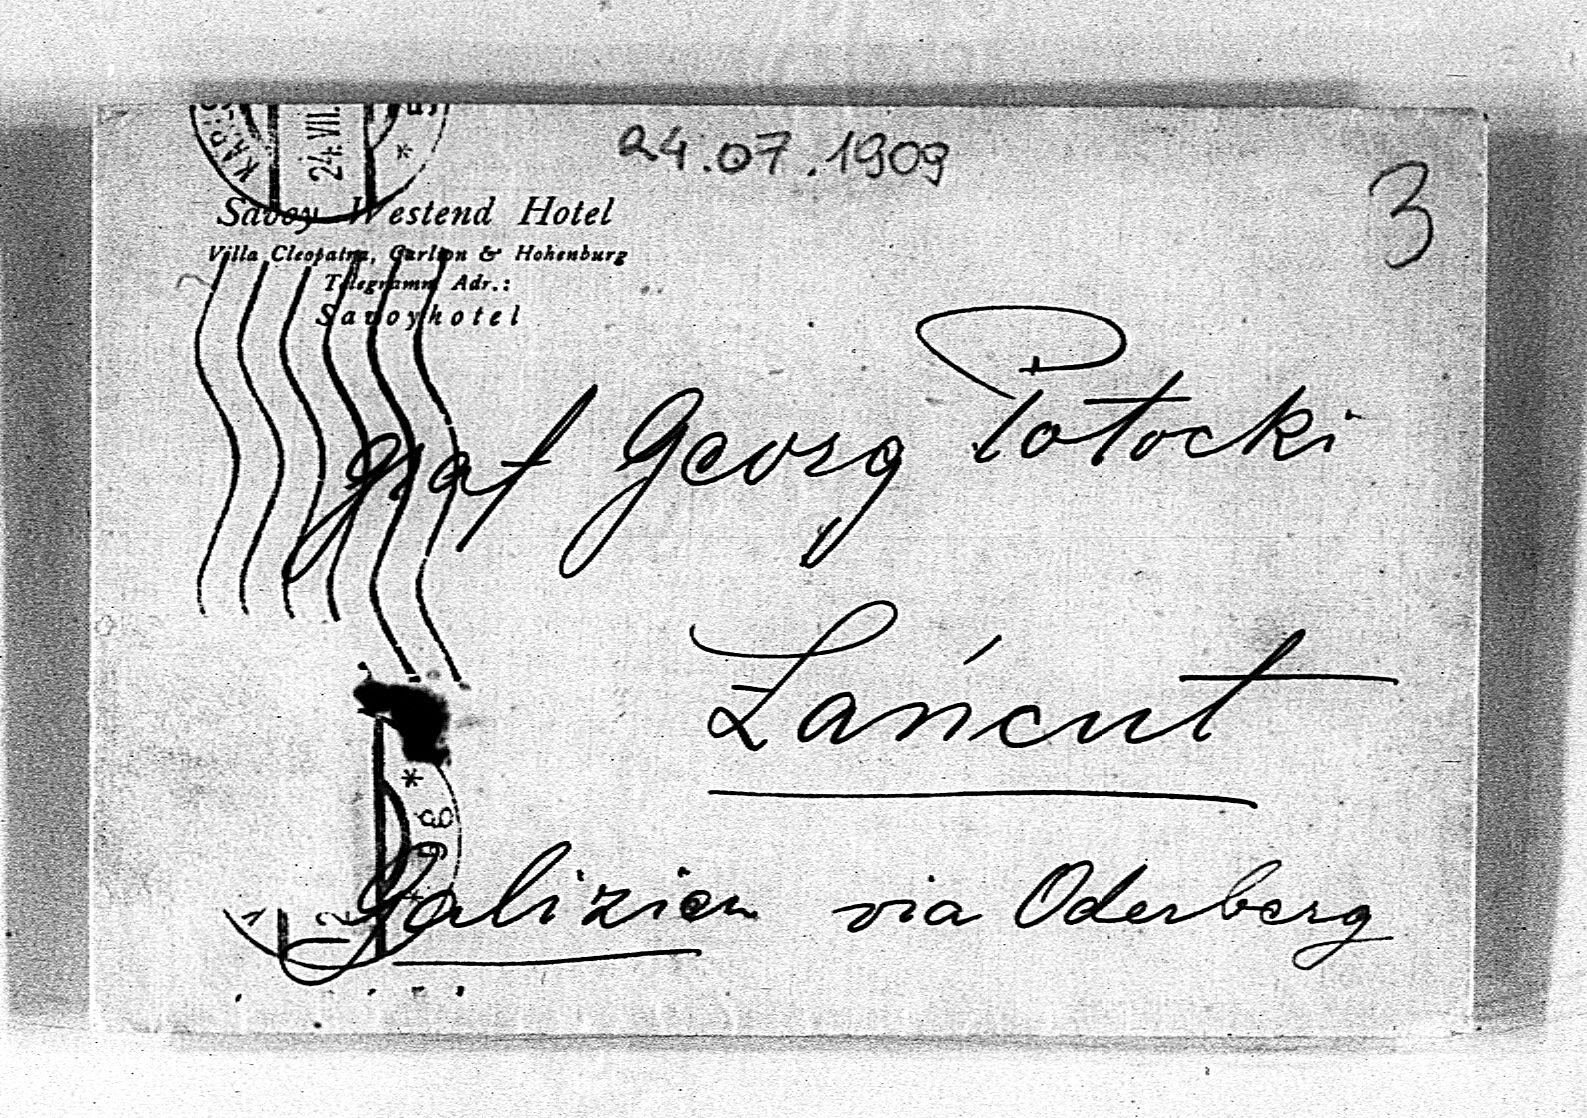 24.07.1909
3
24. VII.
Savoy Westend Hotel
Villa Cleopatra, Carlton & Hohenburg
Telegramm Adr.:
Savoyhotel
Graf Georg Potocki
Łańcut
Galizien via Oderberg